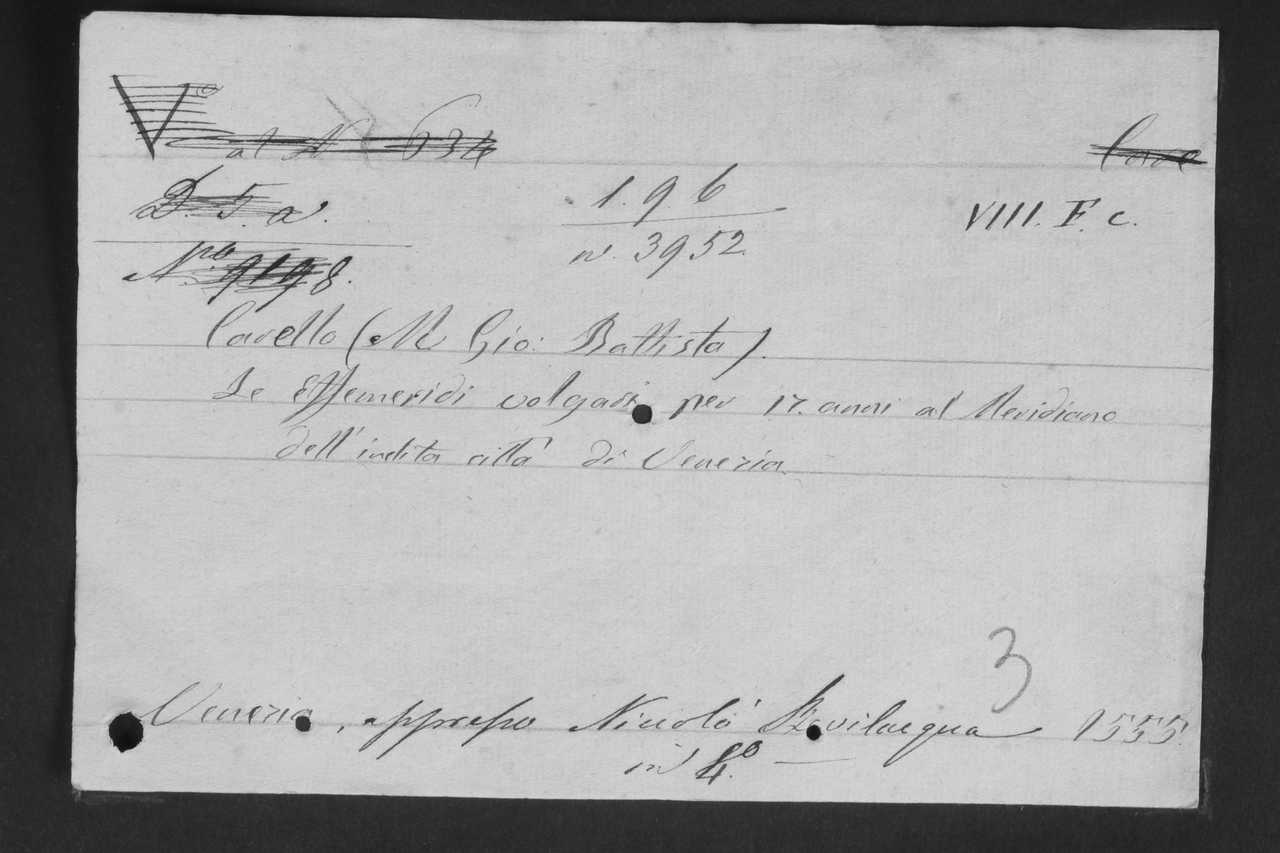 V.o
at N 634
D. 5. a.
1. 9 6
VIII. F. c.
n. 3952
N.ro 9198.
Carello (M Gio: Battista).
Le Effemeridi volgari per 17. anni al Meridiano
dell' inclita città di Venezia
3
Venezia, appresso Niccolò Bevilacqua 1555.
in 4.o